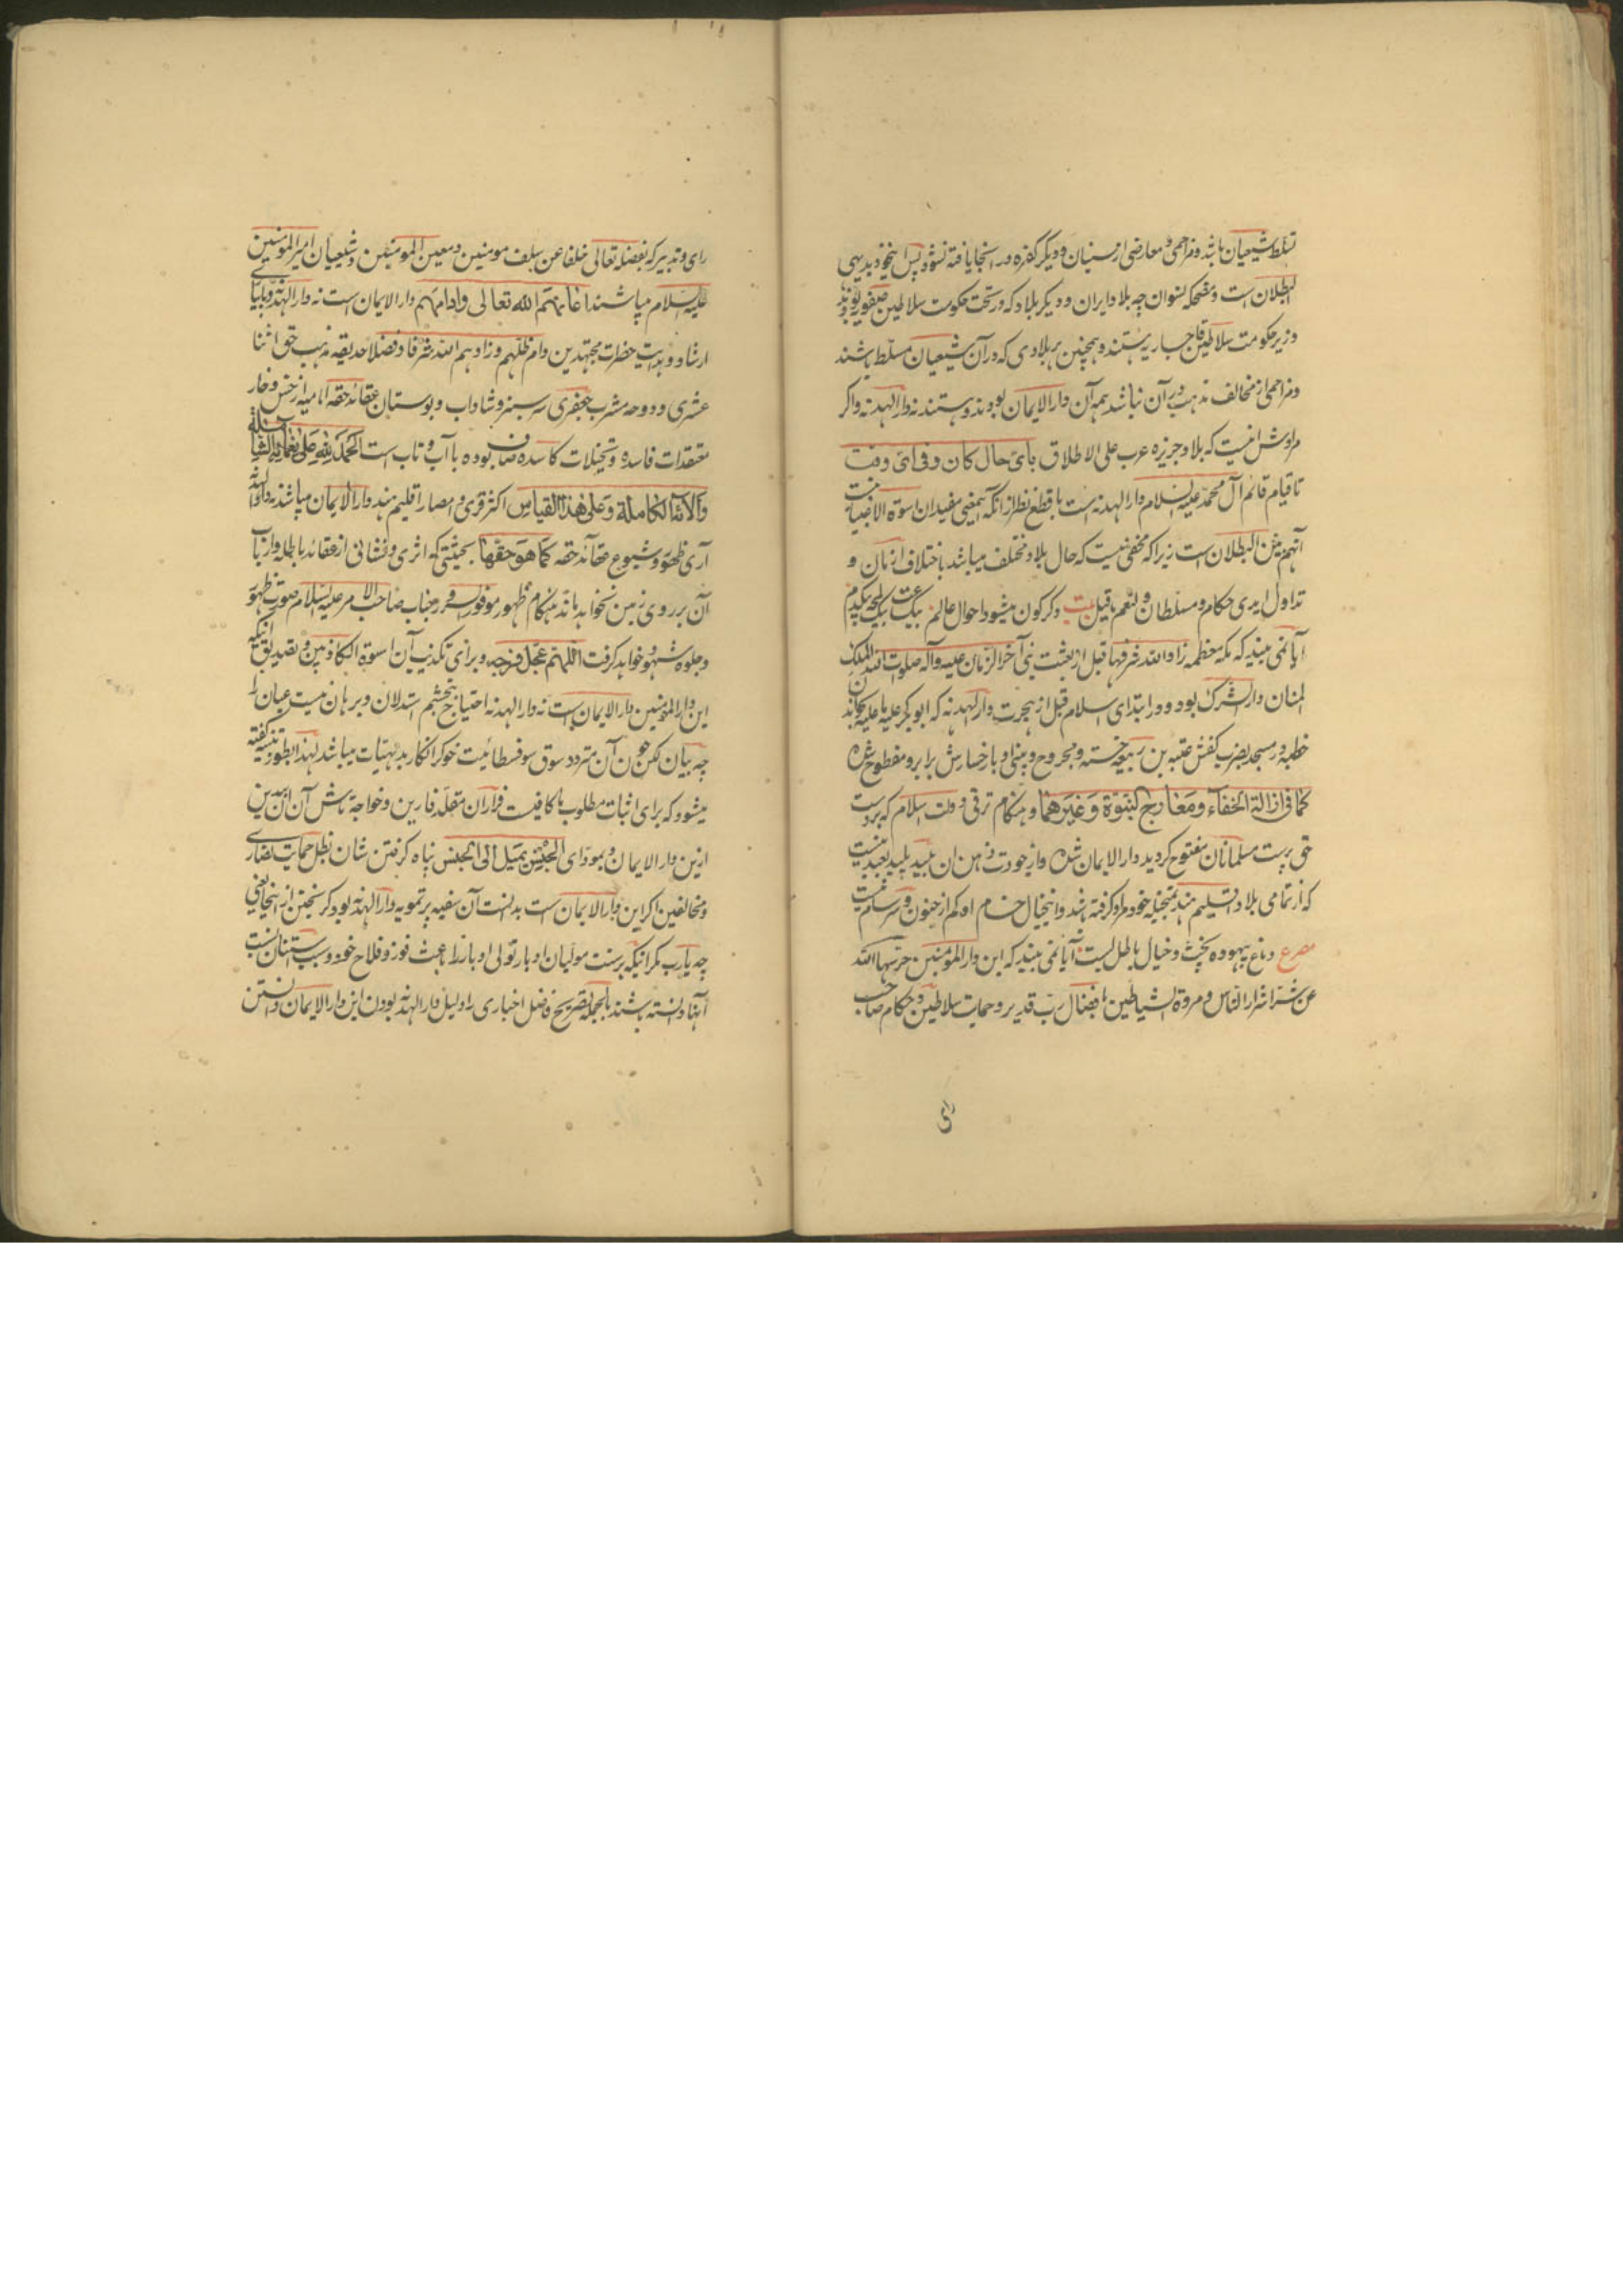 تسلط شیعیان باشد و مزاحمی و معارضی از سنیان و دیگر کفره در انجا یافته نشود پس اینخود بدیهی
البطلان است و مضحکه نسوان چه بلاد ایران و دیگر بلاد که در تحت حکومت سلاطین صفویه بودند
و زیر حکومت سلاطین قاجاریه هستند و همچنین هر بلادی که در آن شیعیان مسلط باشند
و مزاحمی از مخالف مذهب در آن نباشد همه آن دار الایمان بودند و هستند نه دار الهدنه و اگر
مرادش اینست که بلاد جزیره عرب علی الاطلاق بای حال کان و فی ای وقت
تا قیام قائم آل محمد علیه السلام دار الهدنه است با قطع نظر از آنکه اینمعنی مفید ان اسوة الاخباریین نیست
آنهم بین البطلان است زیرا که مخفی نیست که حال بلاد مختلف میباشد باختلاف ازمان و
تداول ایدی حکام و مسلطان و لنعم ما قیل بیت دگرگون میشود احوال عالم بیک ساعت بیک لمحه بیکدم
آیا نمی بیند که مکه معظمه زاد الله شرفها قبل از بعثت نبی آخر الزمان علیه و آله صلوات الله الملک
المنان دار الشرک بود و در ابتدای اسلام قبل از هجرت دار الهدنه که ابوبکر علیه ما علیه بخواندن
خطبه در مسجد بضرب کفش عتبه بن ربیعه خسته و مجروح و بینی او با رخسارش برابر و مفطوح شده
کما فی ازالة الخفاء و معارج النبوة و غیرهما و هنگام ترقی دولت اسلام که بر دست
حق پرست مسلمانان مفتوح گردید دار الایمان شده و از جودت ذهن ان بلید پلید بعید نیست
که از تمامی بلاد اقلیم هند بمتخیله خود مراد گرفته باشد و اینخیال خام او کم از جنون و سرسام نیست
مصرع دماغ بیهوده پخت و خیال باطل بست آیا نمی بیند که این دار المؤمنین حرسها الله
عن شر اشرار الناس و مردة الشیاطین بافضال رب قدیر و حمایت سلاطین و حکام صاحب
رای
رای و تدبیر که بفضله تعالی خلفا عن سلف مومنین و معین المومنین و شیعیان امیر المؤمنین
علیه السلام میباشند اعانهم الله تعالی و ادامهم دار الایمان است نه دار الهدنه و بمیامن
ارشاد و هدایت حضرات مجتهدین دام ظلهم و زادهم الله شرفا و فضلا حدیقه مذهب حق اثنا
عشری و دوحه مشرب جعفری سرسبز و شاداب و بوستان عقائد حقه امامیه از خس و خار
معتقدات فاسده و تخیلات کاسده صاف بوده با آب و تاب است الحمد لله علی نعمائه الشاملة
و الائه الکاملة و علی هذا القیاس اکثر قری و امصار اقلیم هند دار الایمان میباشند نه دار الهدنه
آری ظهور و شیوع عقائد حقه کما هو حقها بحیثیتی که اثری و نشانی از عقائد باطله و ارباب
آن بر روی زمین نخواهد ماند هنگام ظهور موفور السرور جناب صاحب الامر علیه السلام صورت ظهور
و جلوه شهود خواهد گرفت اللهم عجل فرجه و برای تکذیب آن اسوة الکاذبین و تصدیق اینکه
این دار المؤمنین دار الایمان است نه دار الهدنه احتیاج تجشم استدلال و برهان نیست عیان را
چه بیان لکن چون آن متردد سوق سوفسطائیت خوگر انکار بدیهیات میباشد لهذا بطور تنبیه گفته
میشود که برای اثبات مطلوب ما کافیست فرار آن مقلد فارین و خواجه تاش آن ائمه دین
ازین دار الایمان و بمودای الجنس یمیل الی الجنس پناه گرفتن شان بظل حمایت نصاری
و مخالفین اگر این دار الایمان است بدانست آن سفیه پر تمویه دار الهدنه بود گریختن از اینجا یعنی
چه یا رب مگر اینکه بر سنت مولیان ادبار تولی ادبار را باعث فوز و فلاح خود و سبب استنان بسنت
آنها دانسته باشند بالجمله تصریح فاضل اخباری را دلیل دار الهدنه بودن این دار الایمان دانستن